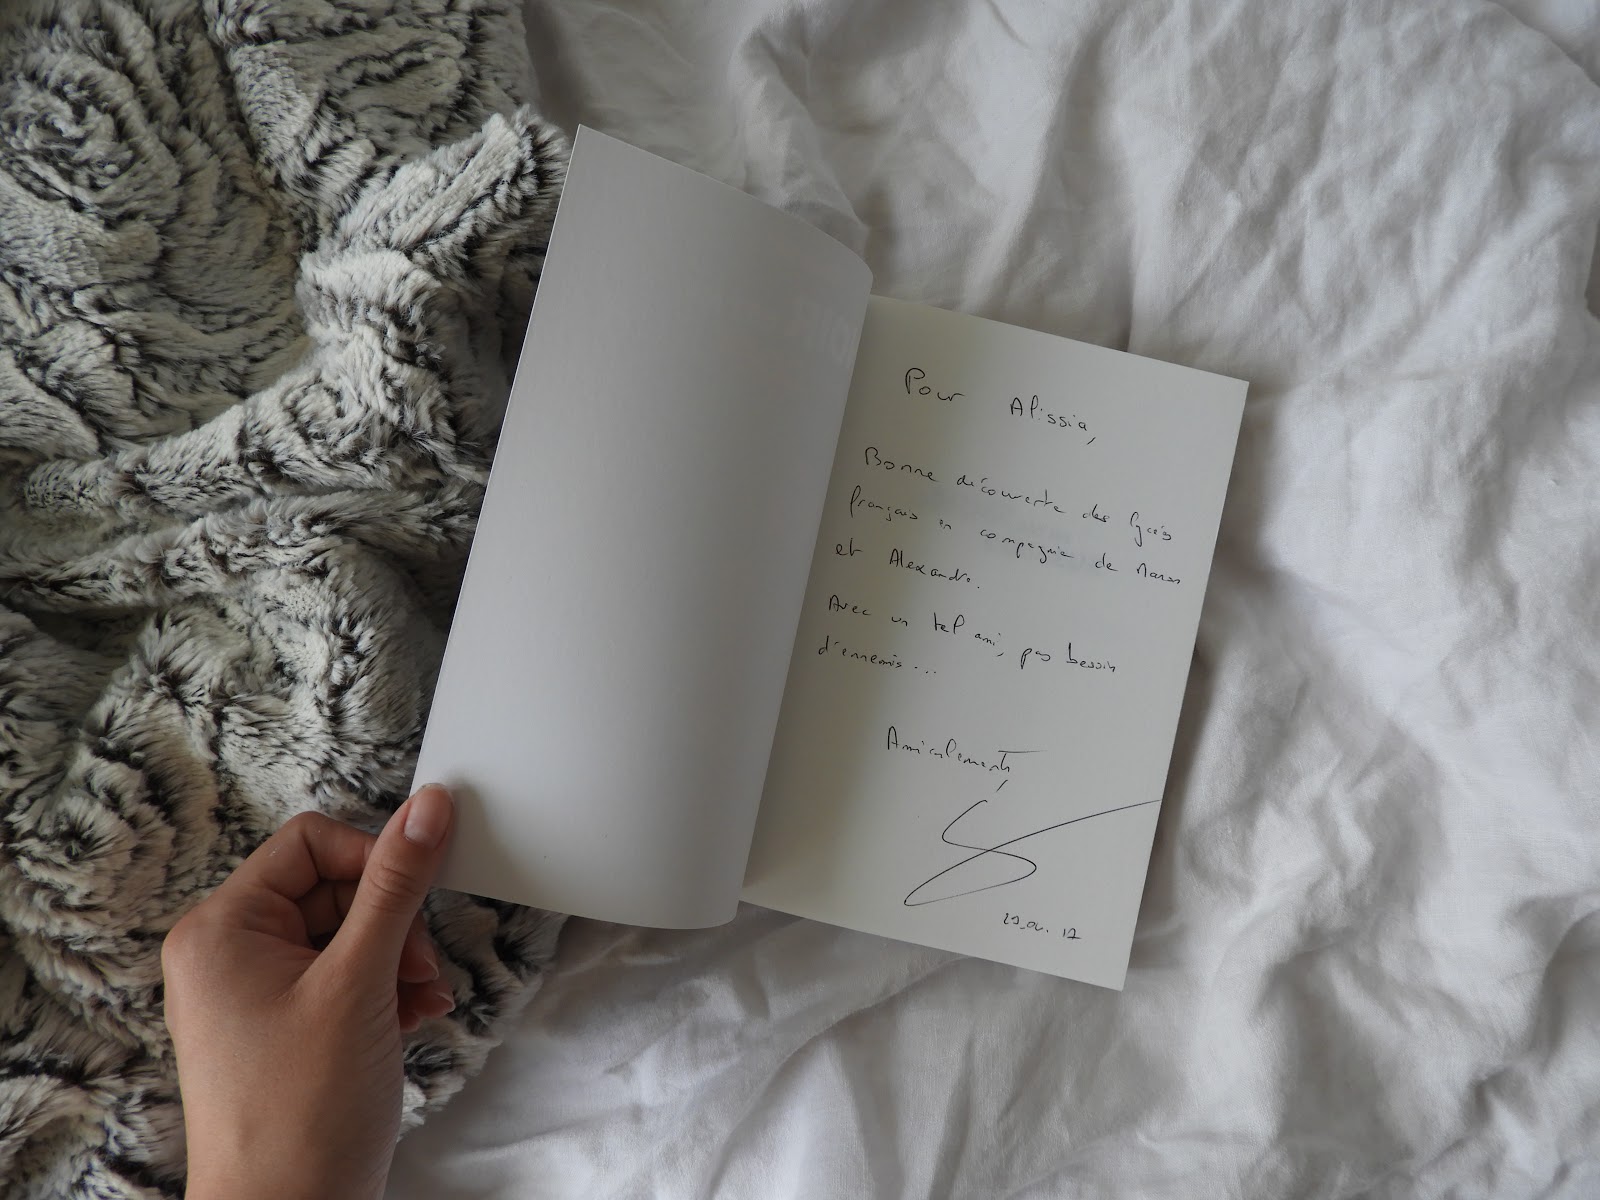 Pour Alissia,
Bonne découverte des lycées
français en compagnie de
et Alexandre.
Avec un tel ami, pas besoin
d'ennemis...
Amicalement,
17